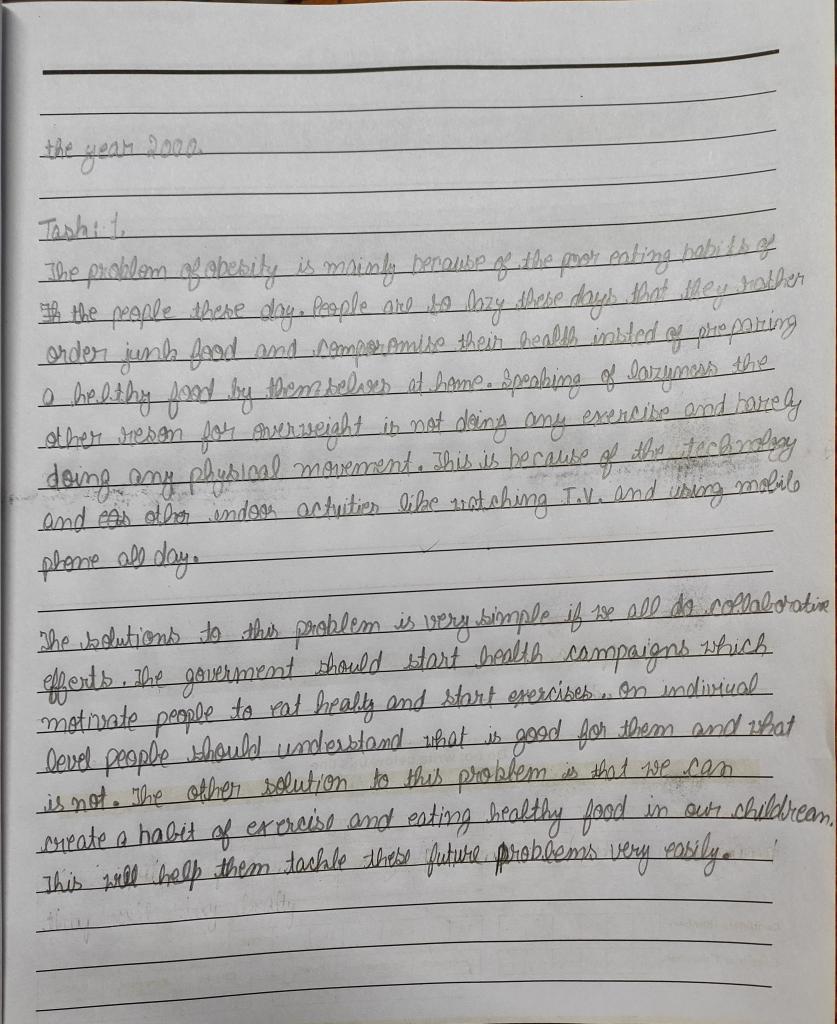 the year 2000.
Task: 1.
The problem of obesity is mainly because of the poor eating habits of
the people these day. People are so lazy these days that they rather
order junk food and compormise their health insted of preparing
a helthy food by themselves at home. Speaking of lazyness the
other reson for overweight is not doing any exercise and barely
doing any physical movement. This is because of the technology
and other indoor actvities like watching T.V. and using mobile
phone all day.
The solutions to this problem is very simple if we all do collaborative
efferts. The goverment should start health campaigns which
motivate people to eat healty and start exercises. On indiviual
level people should understand what is good for them and what
is not. The other solution to this problem is that we can
create a habit of exercise and eating healthy food in our childrean.
This will help them tackle these future problems very easily.